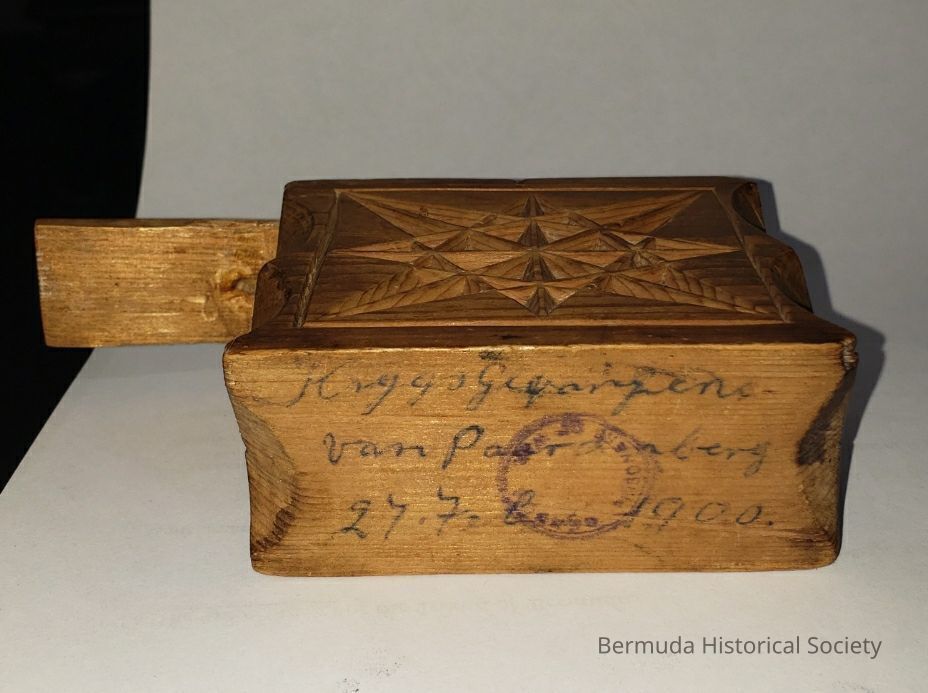 Krygs Gevangene-
van Paardenberg
27. Feb. 1900.
Bermuda Historical Society